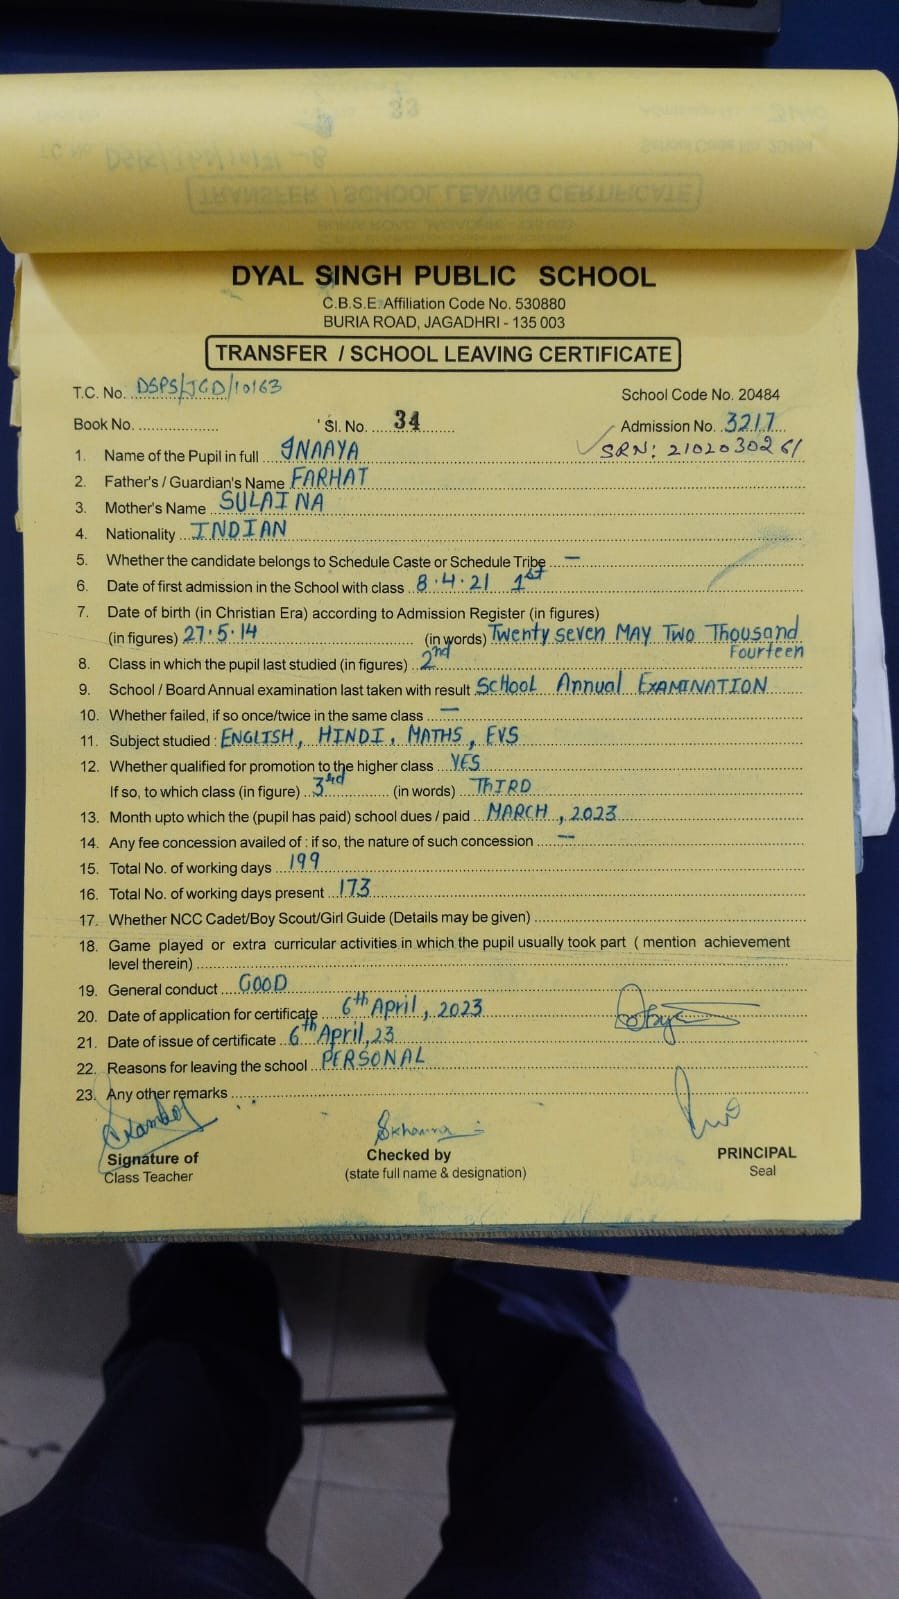 DYAL SINGH PUBLIC SCHOOL
C.B.S.E. Affiliation Code No. 530880
BURIA ROAD, JAGADHRI - 135 003
TRANSFER / SCHOOL LEAVING CERTIFICATE
T.C. No. DSPS/JGD/10163 School Code No. 20484
Book No. Sl. No. 34 Admission No. 3217
SRN: 2102030261
1. Name of the Pupil in full INAAYA
2. Father's / Guardian's Name FARHAT
3. Mother's Name SULAINA
4. Nationality INDIAN
5. Whether the candidate belongs to Schedule Caste or Schedule Tribe —
6. Date of first admission in the School with class 8.4.21 1st
7. Date of birth (in Christian Era) according to Admission Register (in figures)
(in figures) 27.5.14 (in words) Twenty seven MAY Two Thousand
Fourteen
8. Class in which the pupil last studied (in figures) 2nd
9. School / Board Annual examination last taken with result SCHOOL Annual EXAMINATION
10. Whether failed, if so once/twice in the same class —
11. Subject studied : ENGLISH, HINDI, MATHS, EVS
12. Whether qualified for promotion to the higher class YES
If so, to which class (in figure) 3rd (in words) THIRD
13. Month upto which the (pupil has paid) school dues / paid MARCH, 2023
14. Any fee concession availed of : if so, the nature of such concession —
15. Total No. of working days 199
16. Total No. of working days present 173
17. Whether NCC Cadet/Boy Scout/Girl Guide (Details may be given)
18. Game played or extra curricular activities in which the pupil usually took part ( mention achievement
level therein)
19. General conduct GOOD
20. Date of application for certificate 6th April, 2023
21. Date of issue of certificate 6th April, 23
22. Reasons for leaving the school PERSONAL
23. Any other remarks
Skhanna
Signature of Checked by PRINCIPAL
Class Teacher (state full name & designation) Seal